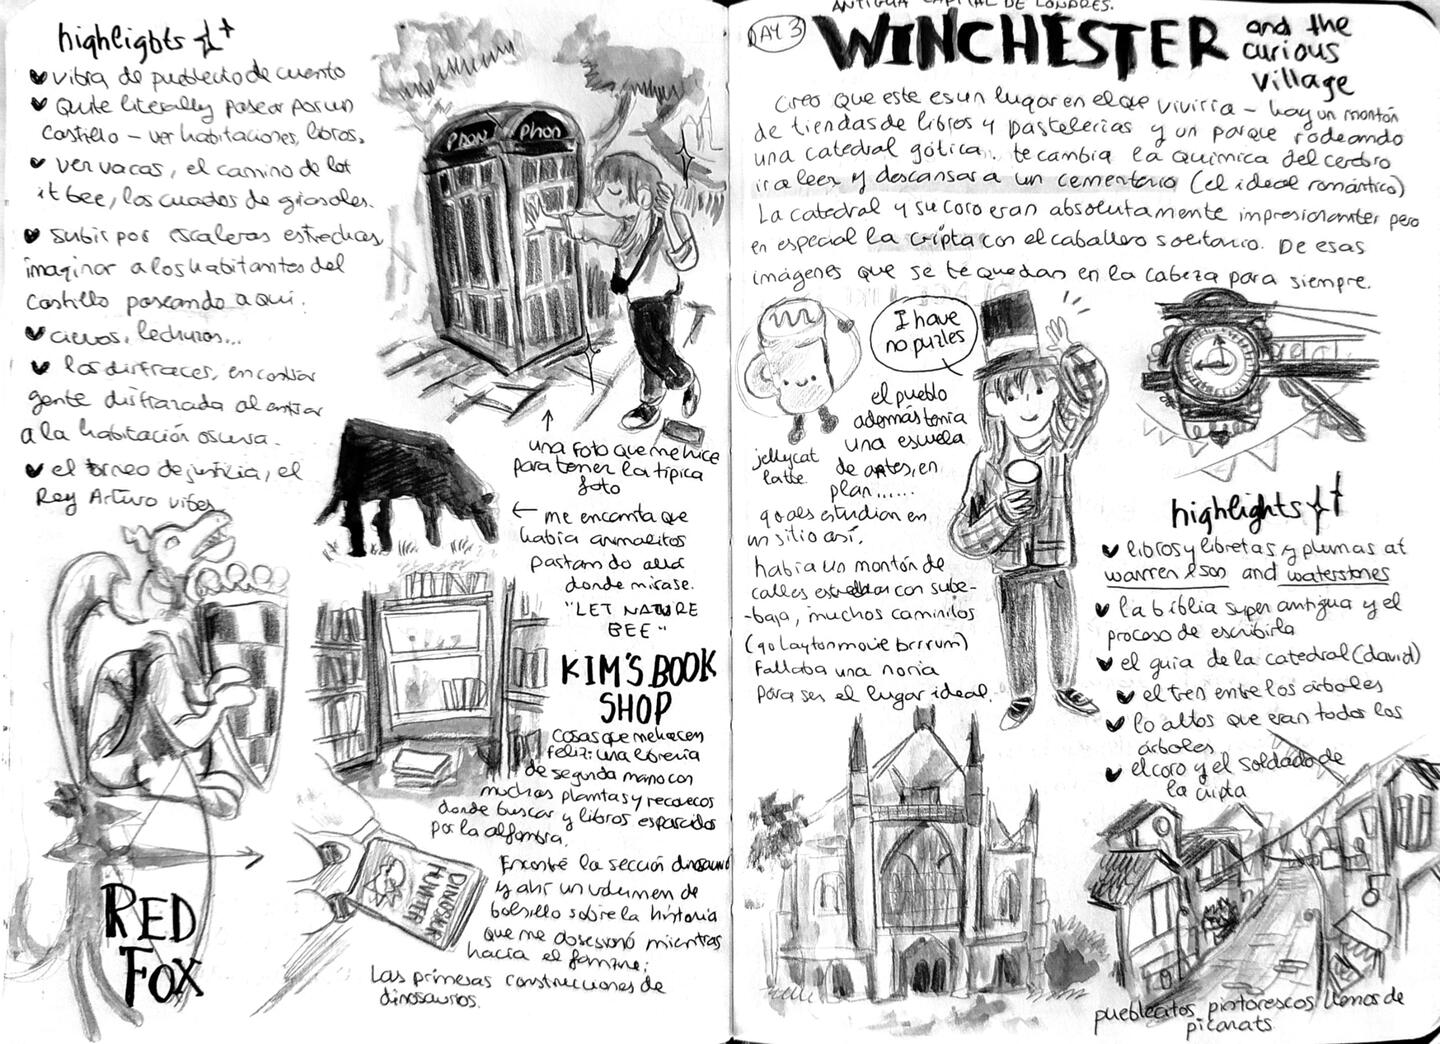 highlights
vibra de pueblecito de cuento
Quite literally pasear por un
castillo – ver habitaciones, libros.
ver vacas, el camino de let
it bee, los cuadros de girasoles.
subir por escaleras estrechas
imaginar a los habitantes del
castillo paseando aquí.
ciervos, lechuzas...
los disfraces, encontrar
gente disfrazada al entrar
a la habitación oscura.
el torneo de justicia, el
Rey Arturo vibes
Phon Phon
una foto que me hice
para tener la típica
foto
← me encanta que
había animalitos
pastando allá
donde mirase.
"LET NATURE
BEE"
KIM'S BOOK
SHOP
Cosas que me hacen
feliz: una librería
de segunda mano con
muchas plantas y recovecos
donde buscar y libros esparcidos
por la alfombra.
Encontré la sección dinosaurio
y ahí un volumen de
bolsillo sobre la historia
que me obsesionó mientras
hacía el fanzine:
Las primeras construcciones de
dinosaurios.
DINOSAUR
HUNTER
RED
FOX
ANTIGUA CAPITAL DE LONDRES.
DAY 3
WINCHESTER and the
curious
village
Creo que este es un lugar en el que viviría – hay un montón
de tiendas de libros y pastelerías y un parque rodeando
una catedral gótica. te cambia la química del cerebro
ir a leer y descansar a un cementerio (el ideal romántico)
La catedral y su coro eran absolutamente impresionantes pero
en especial la cripta con el caballero solitario. De esas
imágenes que se te quedan en la cabeza para siempre.
I have
no puzles
jellycat
latte.
el pueblo
además tenía
una escuela
de artes, en
plan......
quales estudian en
un sitio así.
había un montón de
calles estrechas con sube-
-baja, muchos caminitos
(qo laytonmovie brrrum)
Faltaba una noria
para ser el lugar ideal.
highlights
libros y libretas y plumas at
warren & son and waterstones
la biblia super antigua y el
proceso de escribirla
el guía de la catedral (david)
el tren entre los árboles
lo altos que eran todos los
árboles
el coro y el soldado de
la cripta
pueblecitos pintorescos llenos de